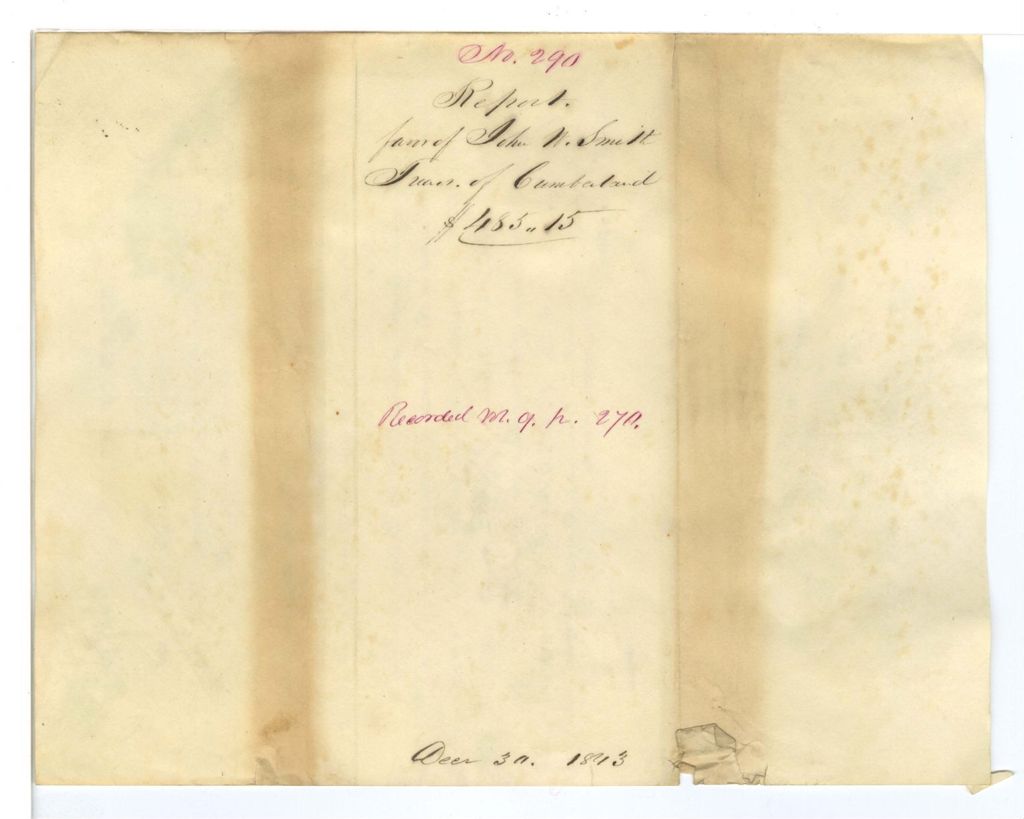 No. 290
Report.
favr of John W. Smith
Treasr. of Cumberland
$485,,15
Recorded M. 9. p. 270.
Decr 30. 1843